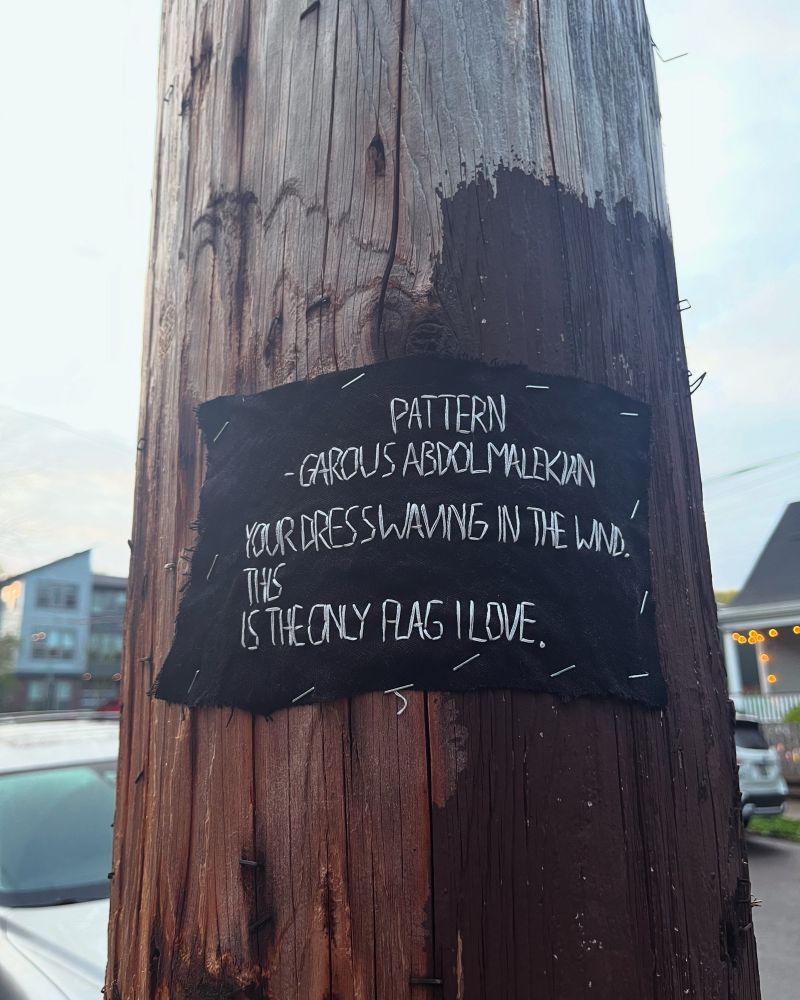 PATTERN
-GAROUS ABDOLMALEKIAN
YOUR DRESS WAVING IN THE WIND.
THIS
IS THE ONLY FLAG I LOVE.